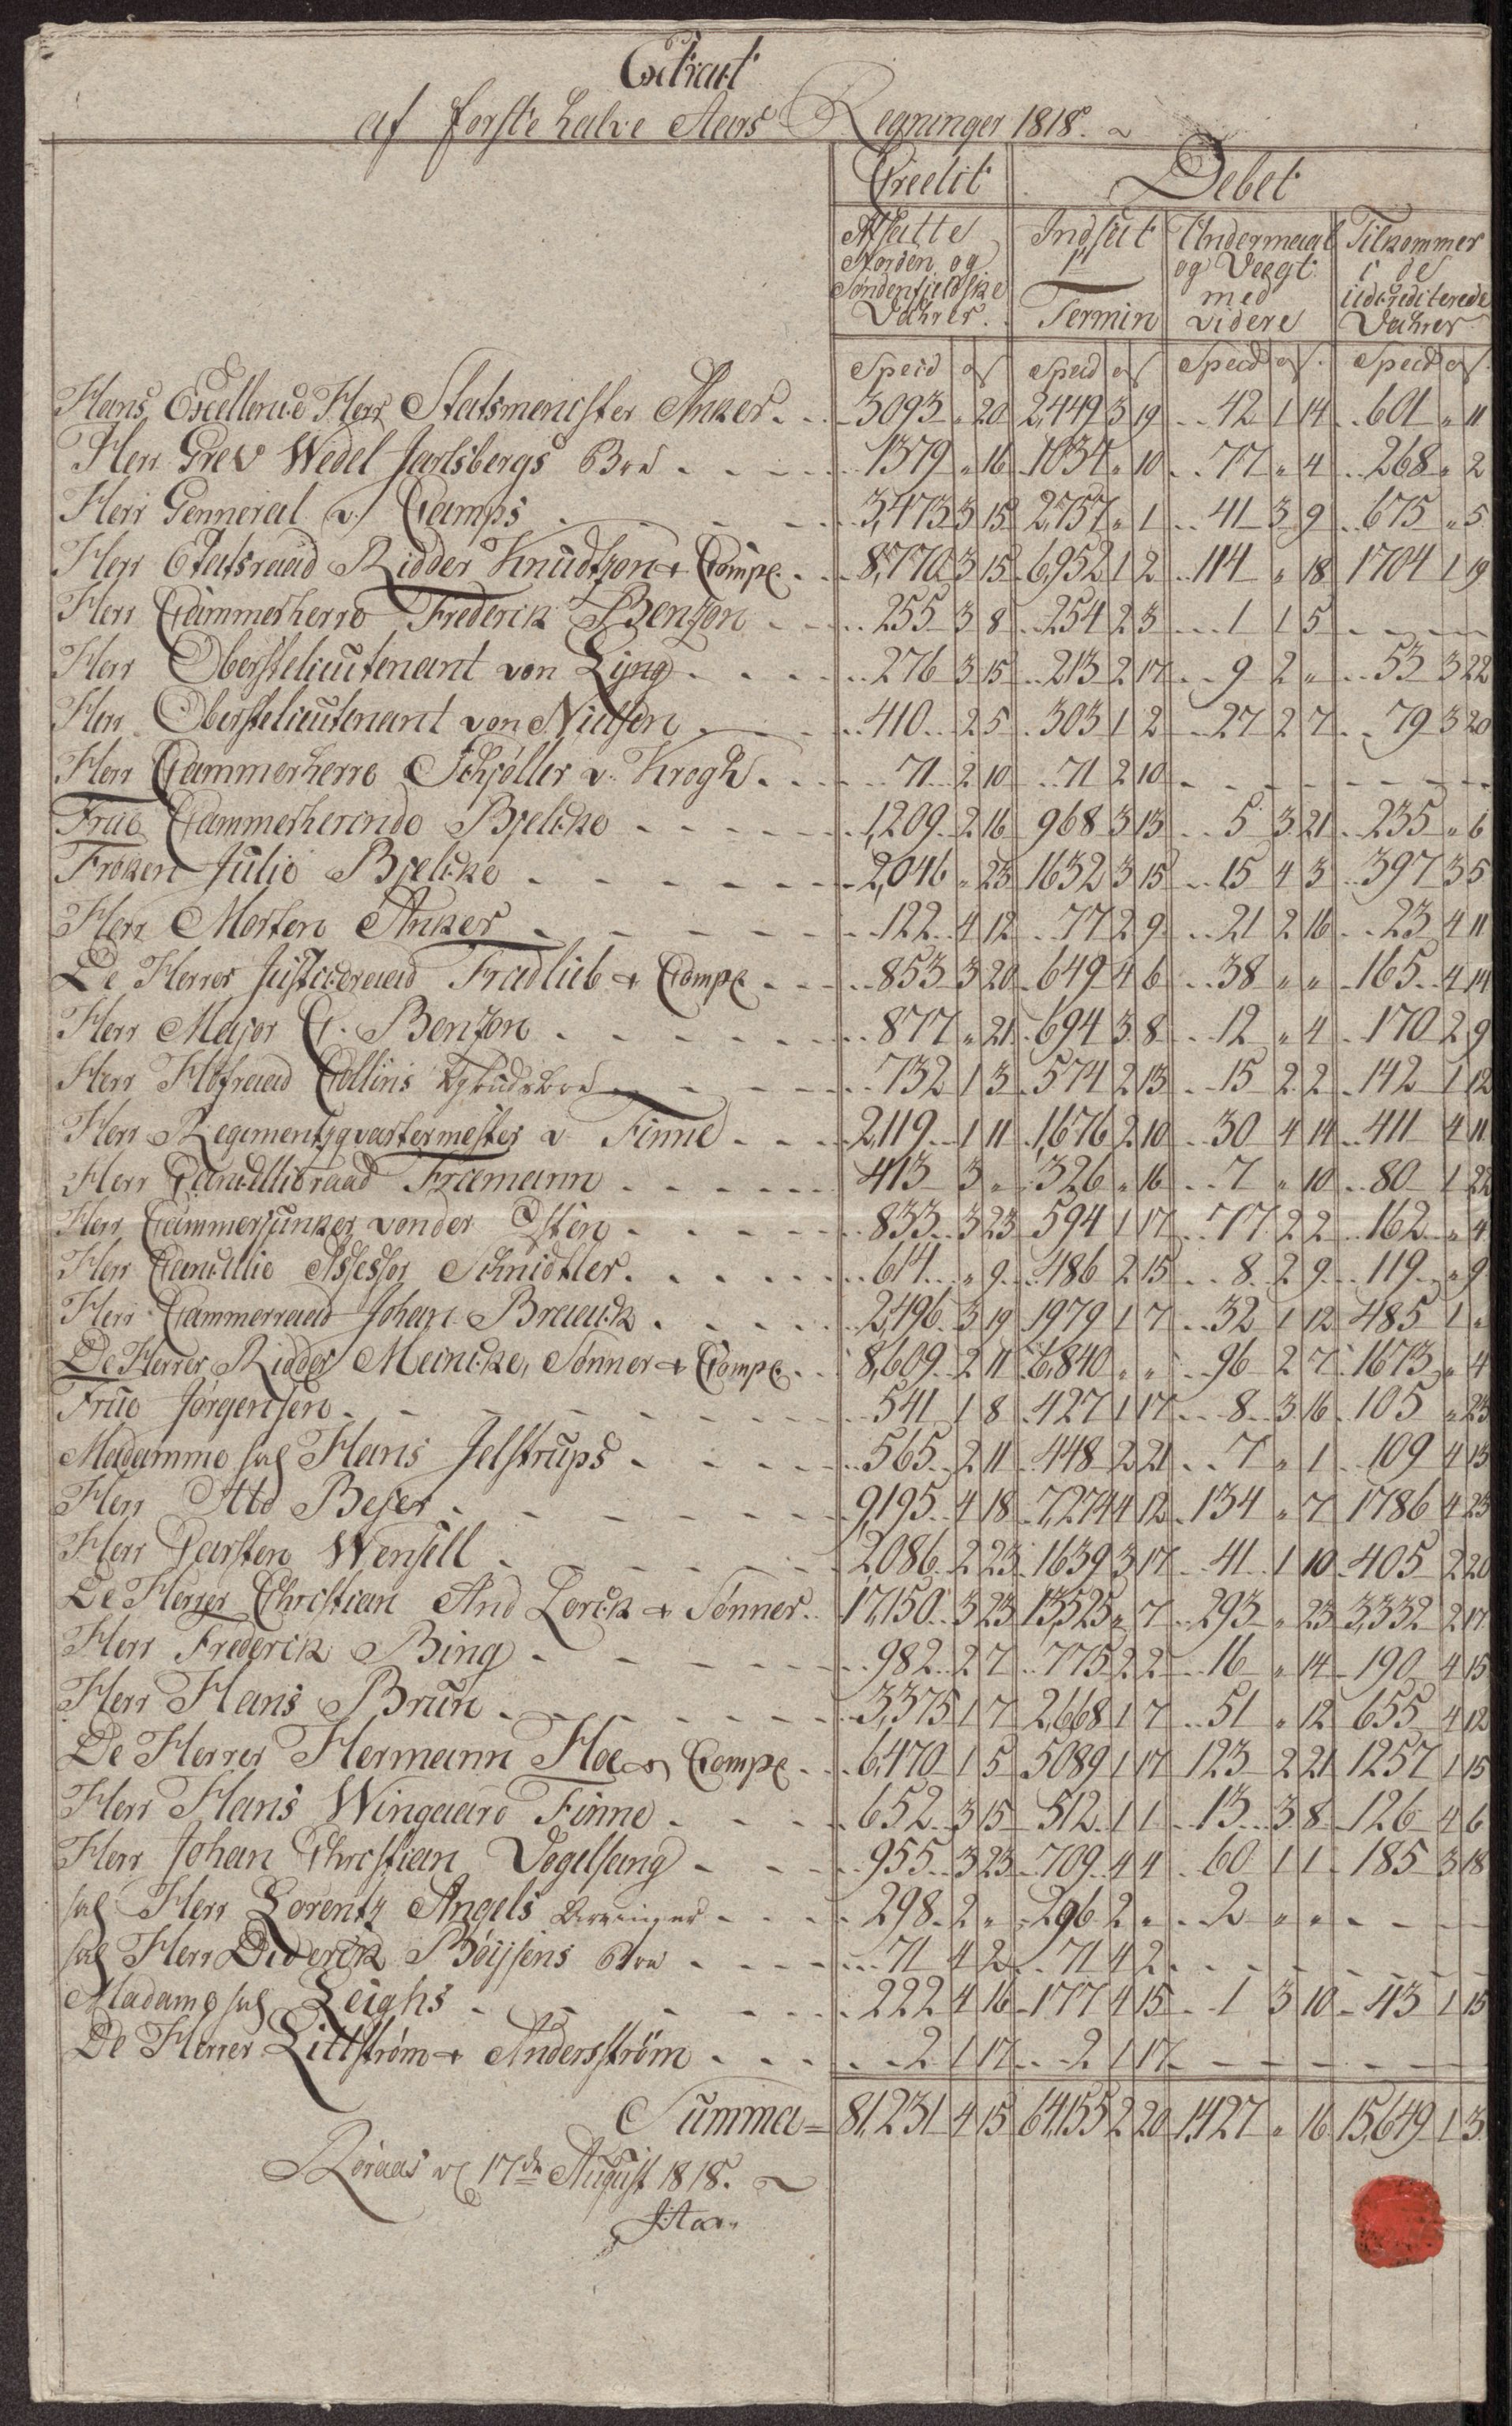 Extract
af første halve Aars Regninger 1818.
Credit Debet
Afsatte Norden og Søndenfieldske Vahrer.
Indsat 1st Termin
Undermaal og Vægt med videre
Tilkommer i de udcrediterede Vahrer
Specd of Specd of Specd of Specd of
Hans Excellence Herr Statsmenister Anker 3093 " 20 2,449 3 19 42 1 14 601 " 11
Herr Grev Wedel Jarlsbergs Boe 1379 " 16 1034 " 10 77 " 4 268 " 2
Herr Genneral v. Camps 3,473 3 15 2,757 " 1 41 3 9 675 " 5
Herr Etatsraad Ridder Knudtzon & Compe. 8,770 3 15 6,952 1 2 114 " 18 1704 1 19
Herr Cammerherre Frederik Benzon 255 3 8 254 2 3 1 1 5
Herr Oberstelieutenant von Lyng 276 3 15 213 2 17 9 2 " 53 3 22
Herr Oberstelieutenant von Nielsen 410 2 5 303 1 2 27 2 7 79 3 20
Herr Cammerherre Schjøller v. Krogh 71 2 10 71 2 10
Frue Cammerherinde Bjelcke 1,209 2 16 968 3 13 5 3 21 235 " 6
Frøken Julie Bjelcke 2,046 " 23 1632 3 15 15 4 3 397 3 5
Herr Morten Anker 122 4 12 77 2 9 21 2 16 23 4 11
De Herrer Justiceraad Fradlieb & Compe 853 3 20 649 4 6 38 " " 165 4 14
Herr Major C. Benzon 877 " 21 694 3 8 12 " 4 170 2 9
Herr Hofraad Collins 732 1 3 574 2 13 15 2 2 142 1 12
Herr Regimentzqvartermester v. Finne 2,119 1 11 1,676 2 10 30 4 14 411 4 11
Herr Cancellieraad Friemann 413 3 " 326 " 16 7 " 10 80 1 22
Herr Cammerjunker von der Osten 833 3 23 594 1 17 77 2 2 162 " 4
Herr Cancellie Assessor Schnidtler 614 " 9 486 2 15 8 2 9 119 " 9
Herr Cammerraad Johan Braack 2,496 3 19 1979 1 7 32 1 12 485 1 "
De Herrer Ridder Meincke, Sønner & Compe. 8,609 2 11 6,840 " " 96 2 7 1673 " 4
Frue Jørgensen 541 1 8 427 1 17 8 3 16 105 " 23
Madamme sal Hans Jelstrups 565 2 11 448 2 21 7 " 1 109 4 13
Herr Otto Beyer 9,195 4 18 7,274 4 12 134 " 7 1786 4 23
Herr Carsten Wensell 2,086 2 23 1639 3 17 41 1 10 405 2 20
De Herrer Christian And Lorck & Sønner 17,150 3 23 13,525 " 7 293 " 23 3,332 2 17
Herr Frederik Bing 982 2 7 775 2 2 16 " 14 190 4 15
Herr Hans Brun 3,375 1 7 2,668 1 7 51 " 12 655 4 12
De Herrer Hermann Hoe & Compe 6,470 1 5 5089 1 17 123 2 21 1257 1 15
Herr Hans Wingaard Finne 652 3 15 512 1 1 13 3 8 126 4 6
Herr Johan Christian Vogelsang 955 3 23 709 4 4 60 1 1 185 3 18
sal Herr Lorentz Angels Arvinger 298 2 " 296 2 " 2 " "
sal Herr Diderik Böijsens Boe 71 4 2 71 4 2
Madame sal Leighs 222 4 16 177 4 15 1 3 10 43 1 15
De Herrer Littström & Andersström 2 1 17 2 1 17
Summa = 81,231 4 15 64,155 2 20 1,427 " 16 15,649 1 3
Røraas d 17de August 1818.